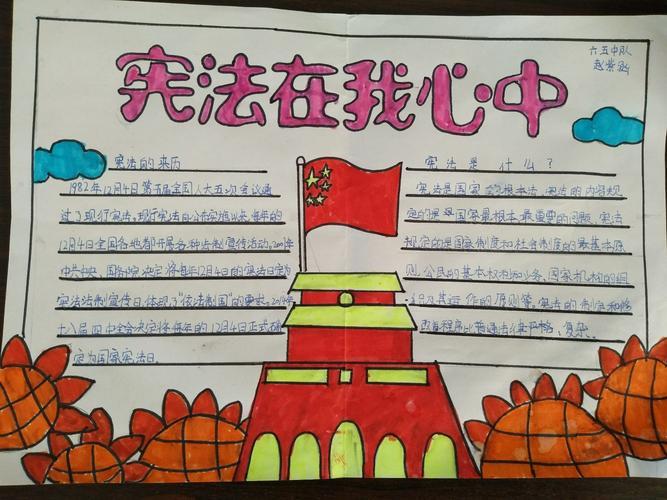 宪法在我心中
六五中队
赵紫
宪法的来历
1982年12月4日第五届全国人大五次会议通
过了现行宪法,现行宪法自公布实施以来,每年的
12月4日全国各地都开展各种法制宣传活动。2001年
中共中央、国务院决定将每年12月4日的宪法日定为
宪法法制宣传日,体现了“依法制国”的要求。2014年
十八届四中全会决定将每年的12月4日正式确
定为国家宪法日。
宪法是什么?
宪法是国家的根本法,宪法的内容规
定的是国家最根本、最重要的问题,宪法
规定的是国家制度和社会制度的最基本原
则,公民的基本权利和义务、国家机构的组
织及其运作的原则等,宪法的制定和修
改程序比普通法律严格、复杂。